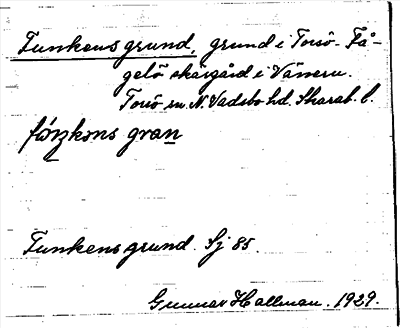 Funkens grund, grund i Torsö-Få-
gelö skärgård i Vänern.
Torsö sn. N. Vadsbo hd. Skarab. l.
gran
Funkens grund. Sj 85.
Gunnar Hallman. 1929.